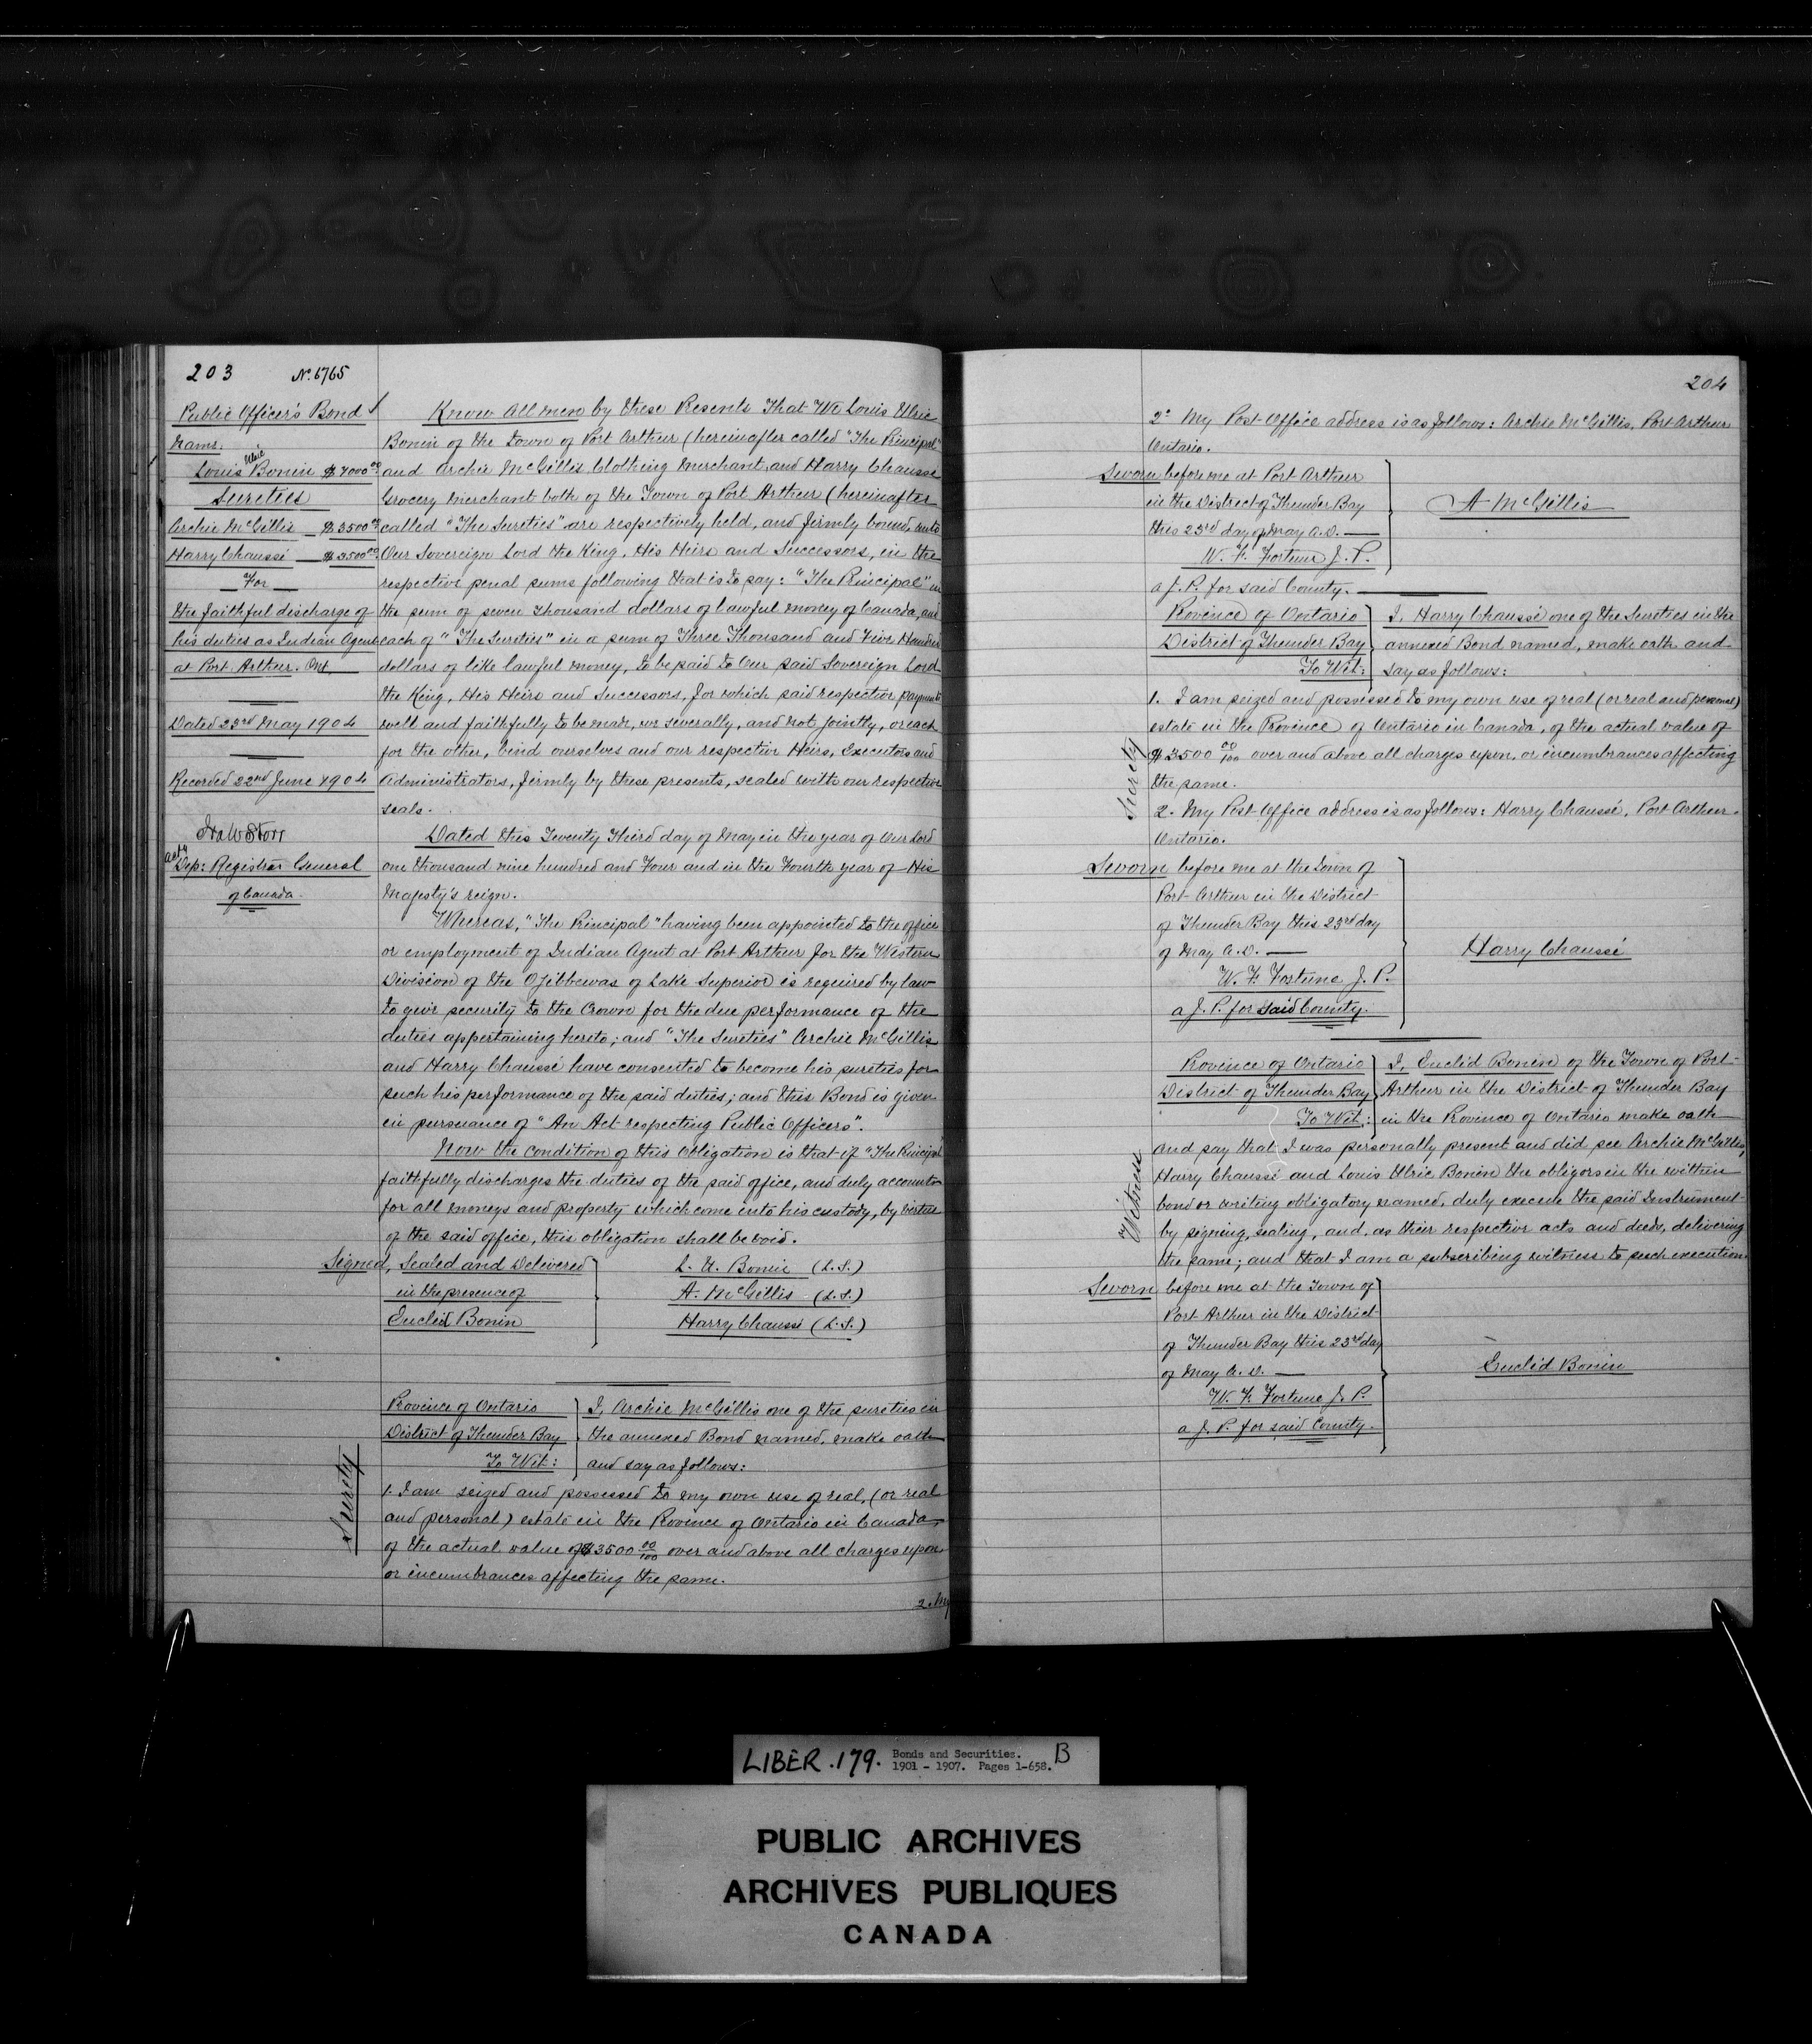 203 No. 6765
Public Officer's Bond
Name.
Louis Ulric Bonin $7000 00
Sureties
Archie McGillis $3500 00
Harry Chaussé $3500 00
For
the faithful discharge of
his duties as Indian Agent
at Port Arthur. Ont.
Dated 23rd May 1904
Recorded 22nd June 1904
Actg
Dep: Registrar General
of Canada.
Know all men by these Presents That We Louis Ulric
Bonin of the Town of Port Arthur (hereinafter called "The Principal"
and Archie McGillis Clothing Merchant, and Harry Chaussé
Grocery Merchant both of the Town of Port Arthur (hereinafter
called "The Sureties" are respectively held, and firmly bound unto
Our Sovereign Lord the King, His Heirs and Successors, in the
respective penal sums following that is to say: "The Principal" in
the sum of seven thousand dollars of lawful money of Canada, and
each of "The Sureties" in a sum of Three Thousand and Five Hundred
dollars of like lawful money, to be paid to Our said Sovereign Lord
the King, His Heirs and Successors, for which said respective payments
well and faithfully to be made, we severally, and not jointly, or each
for the other, bind ourselves and our respective Heirs, Executors and
Administrators, firmly by these presents, sealed with our respective
seals.
Dated this Twenty Third day of May in the year of Our Lord
one thousand nine hundred and Four and in the Fourth year of His
Majesty's reign.
Whereas, "The Principal" having been appointed to the office
or employment of Indian Agent at Port Arthur for the Western
Division of the Ojibbewas of Lake Superior is required by law
to give security to the Crown for the due performance of the
duties appertaining hereto; and "The Sureties" Archie McGillis
and Harry Chaussé have consented to become his sureties for
such his performance of the said duties; and this Bond is given
in pursuance of "An Act respecting Public Officers".
Now the condition of this obligation is that if "The Principal
faithfully discharges the duties of the said office, and duly accounts
for all moneys and property which come into his custody, by virtue
of the said office, this obligation shall be void.
Signed, Sealed and Delivered
in the presence of
Euclid Bonin
L. U. Bonin (L.S.)
A. McGillis (L.S.)
Harry Chaussé (L.S.)
Surety
Province of Ontario
District of Thunder Bay
To Wit:
I, Archie McGillis one of the sureties in
the annexed Bond named, make oath
and say as follows:
1. I am seized and possessed to my own use of real, (or real
and personal) estate in the Province of Ontario in Canada,
of the actual value of $3500 00/100 over and above all charges upon
or incumbrances affecting the same.
2. My
204
2° My Post Office address is as follows: Archie McGillis, Port Arthur
Ontario.
Sworn before me at Port Arthur
in the District of Thunder Bay
this 23rd day of May A.D. —
W. F. Fortune J. P.
a J. P. for said County.
A McGillis
Province of Ontario
District of Thunder Bay
To Wit:
I, Harry Chaussé one of the Sureties in the
annexed Bond named, make oath and
say as follows:
Surety
1. I am seized and possessed to my own use of real (or real and personal)
estate in the Province of Ontario in Canada, of the actual value of
$3500 00/100 over and above all charges upon, or incumbrances affecting
the same.
2. My Post Office address is as follows: Harry Chaussé, Port Arthur.
Ontario.
Sworn before me at the Town of
Port Arthur in the District
of Thunder Bay this 23rd day
of May A.D. —
W. F. Fortune J. P.
a J. P. for said County.
Harry Chaussé
Province of Ontario
District of Thunder Bay
To Wit:
I, Euclid Bonin of the Town of Port
Arthur in the District of Thunder Bay
in the Province of Ontario make oath
Witness
and say that I was personally present and did see Archie McGillis,
Harry Chaussé and Louis Ulric Bonin the obligors in the within
bond or writing obligatory named, duly execute the said Instrument
by signing, sealing, and, as their respective acts and deeds, delivering
the same; and that I am a subscribing witness to such execution.
Sworn before me at the Town of
Port Arthur in the District
of Thunder Bay this 23rd day
of May A.D. —
W. F. Fortune J. P.
a J. P. for said County.
Euclid Bonin
LIBER.179. Bonds and Securities. B
1901 - 1907. Pages 1-658.
PUBLIC ARCHIVES
ARCHIVES PUBLIQUES
CANADA